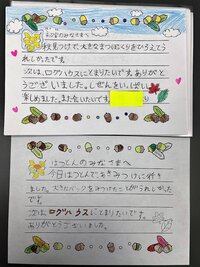 秋見つけで、大きなまつぼっくりをひろえてう
れしかったです。
次は、ログハウスにとまりたいです。ありがと
うございました。しぜんをいっぱい
楽しめました。また会いたいです。
はっとんのみなさまへ
今日はっとんであきみつけに行き
ました。大きなバークをみつけたことがうれしかった
です。
次は、ログハウスにとまりたいです。
ありがとうございました。